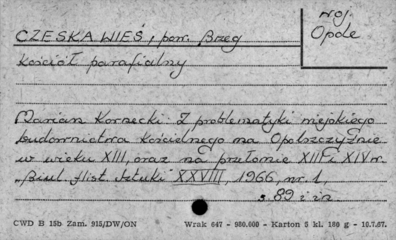 woj.
Opole
CZESKA WIEŚ, pow. Brzeg
Kościół parafialny
Marian Kornecki: Z problematyki miejskiego
budownictwa kościelnego na Opolszczyźnie
w wieku XIII, oraz na przełomie XIII i XIV w.
Biul. Hist. Sztuki XXVIII, 1966, nr. 1,
s. 89 i in.
CWD B 15b Zam. 915/DW/ON Wrak 647 - 980.000 - Karton 5 kl. 180 g - 10.7.67.